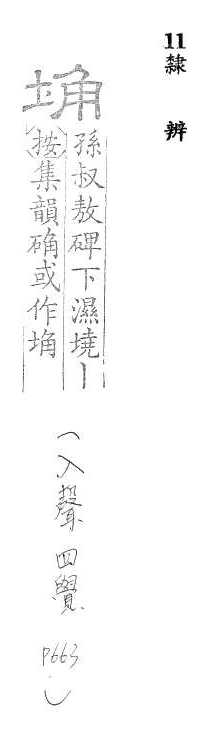 11 隸辨
埆
孫叔敖碑下濕墝丨
按集韻确或作埆
(入聲 四覺 p663)